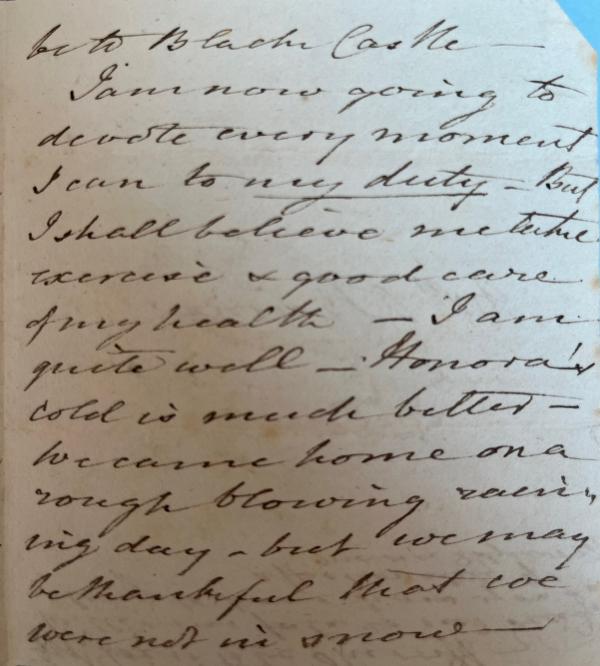 be to Black Castle —
I am now going to
devote every moment
I can to my duty - But
I shall believe me take
exercise & good care
of my health — I am
quite well — Honora's
cold is much better —
We came home on a
rough blowing rain-
ing day - but we may
be thankful that we
were not in snow —